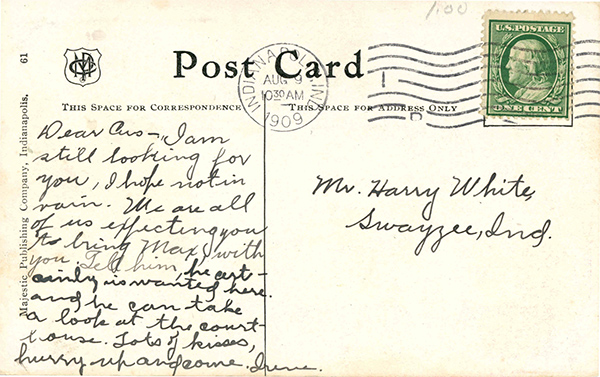 1.00
U.S. POSTAGE
ONE CENT
Post Card
INDIANAPOLIS, IND.
AUG 9
10 30 AM
1909
1
THIS SPACE FOR CORRESPONDENCE
THIS SPACE FOR ADDRESS ONLY
61
Majestic Publishing Company, Indianapolis.
Dear Cus-, I am
still looking for
you, I hope not in
vain. We are all
of us effecting you
to bring Max, with
you. Tell him, he cert-
ainly is wanted here.
and he can take
a look at the court-
house. Lots of kisses,
hurry up and come. Irene.
Mr. Harry White,
Swayzee, Ind.